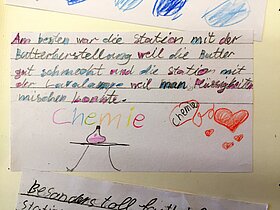 Am besten war die Station mit der
Butterherstellung weil die Butter
gut schmeckt und die Station mit
der Lavalampe weil man Flüssigkeiten
mischen konnte.
Chemie
Chemie
Besonders toll